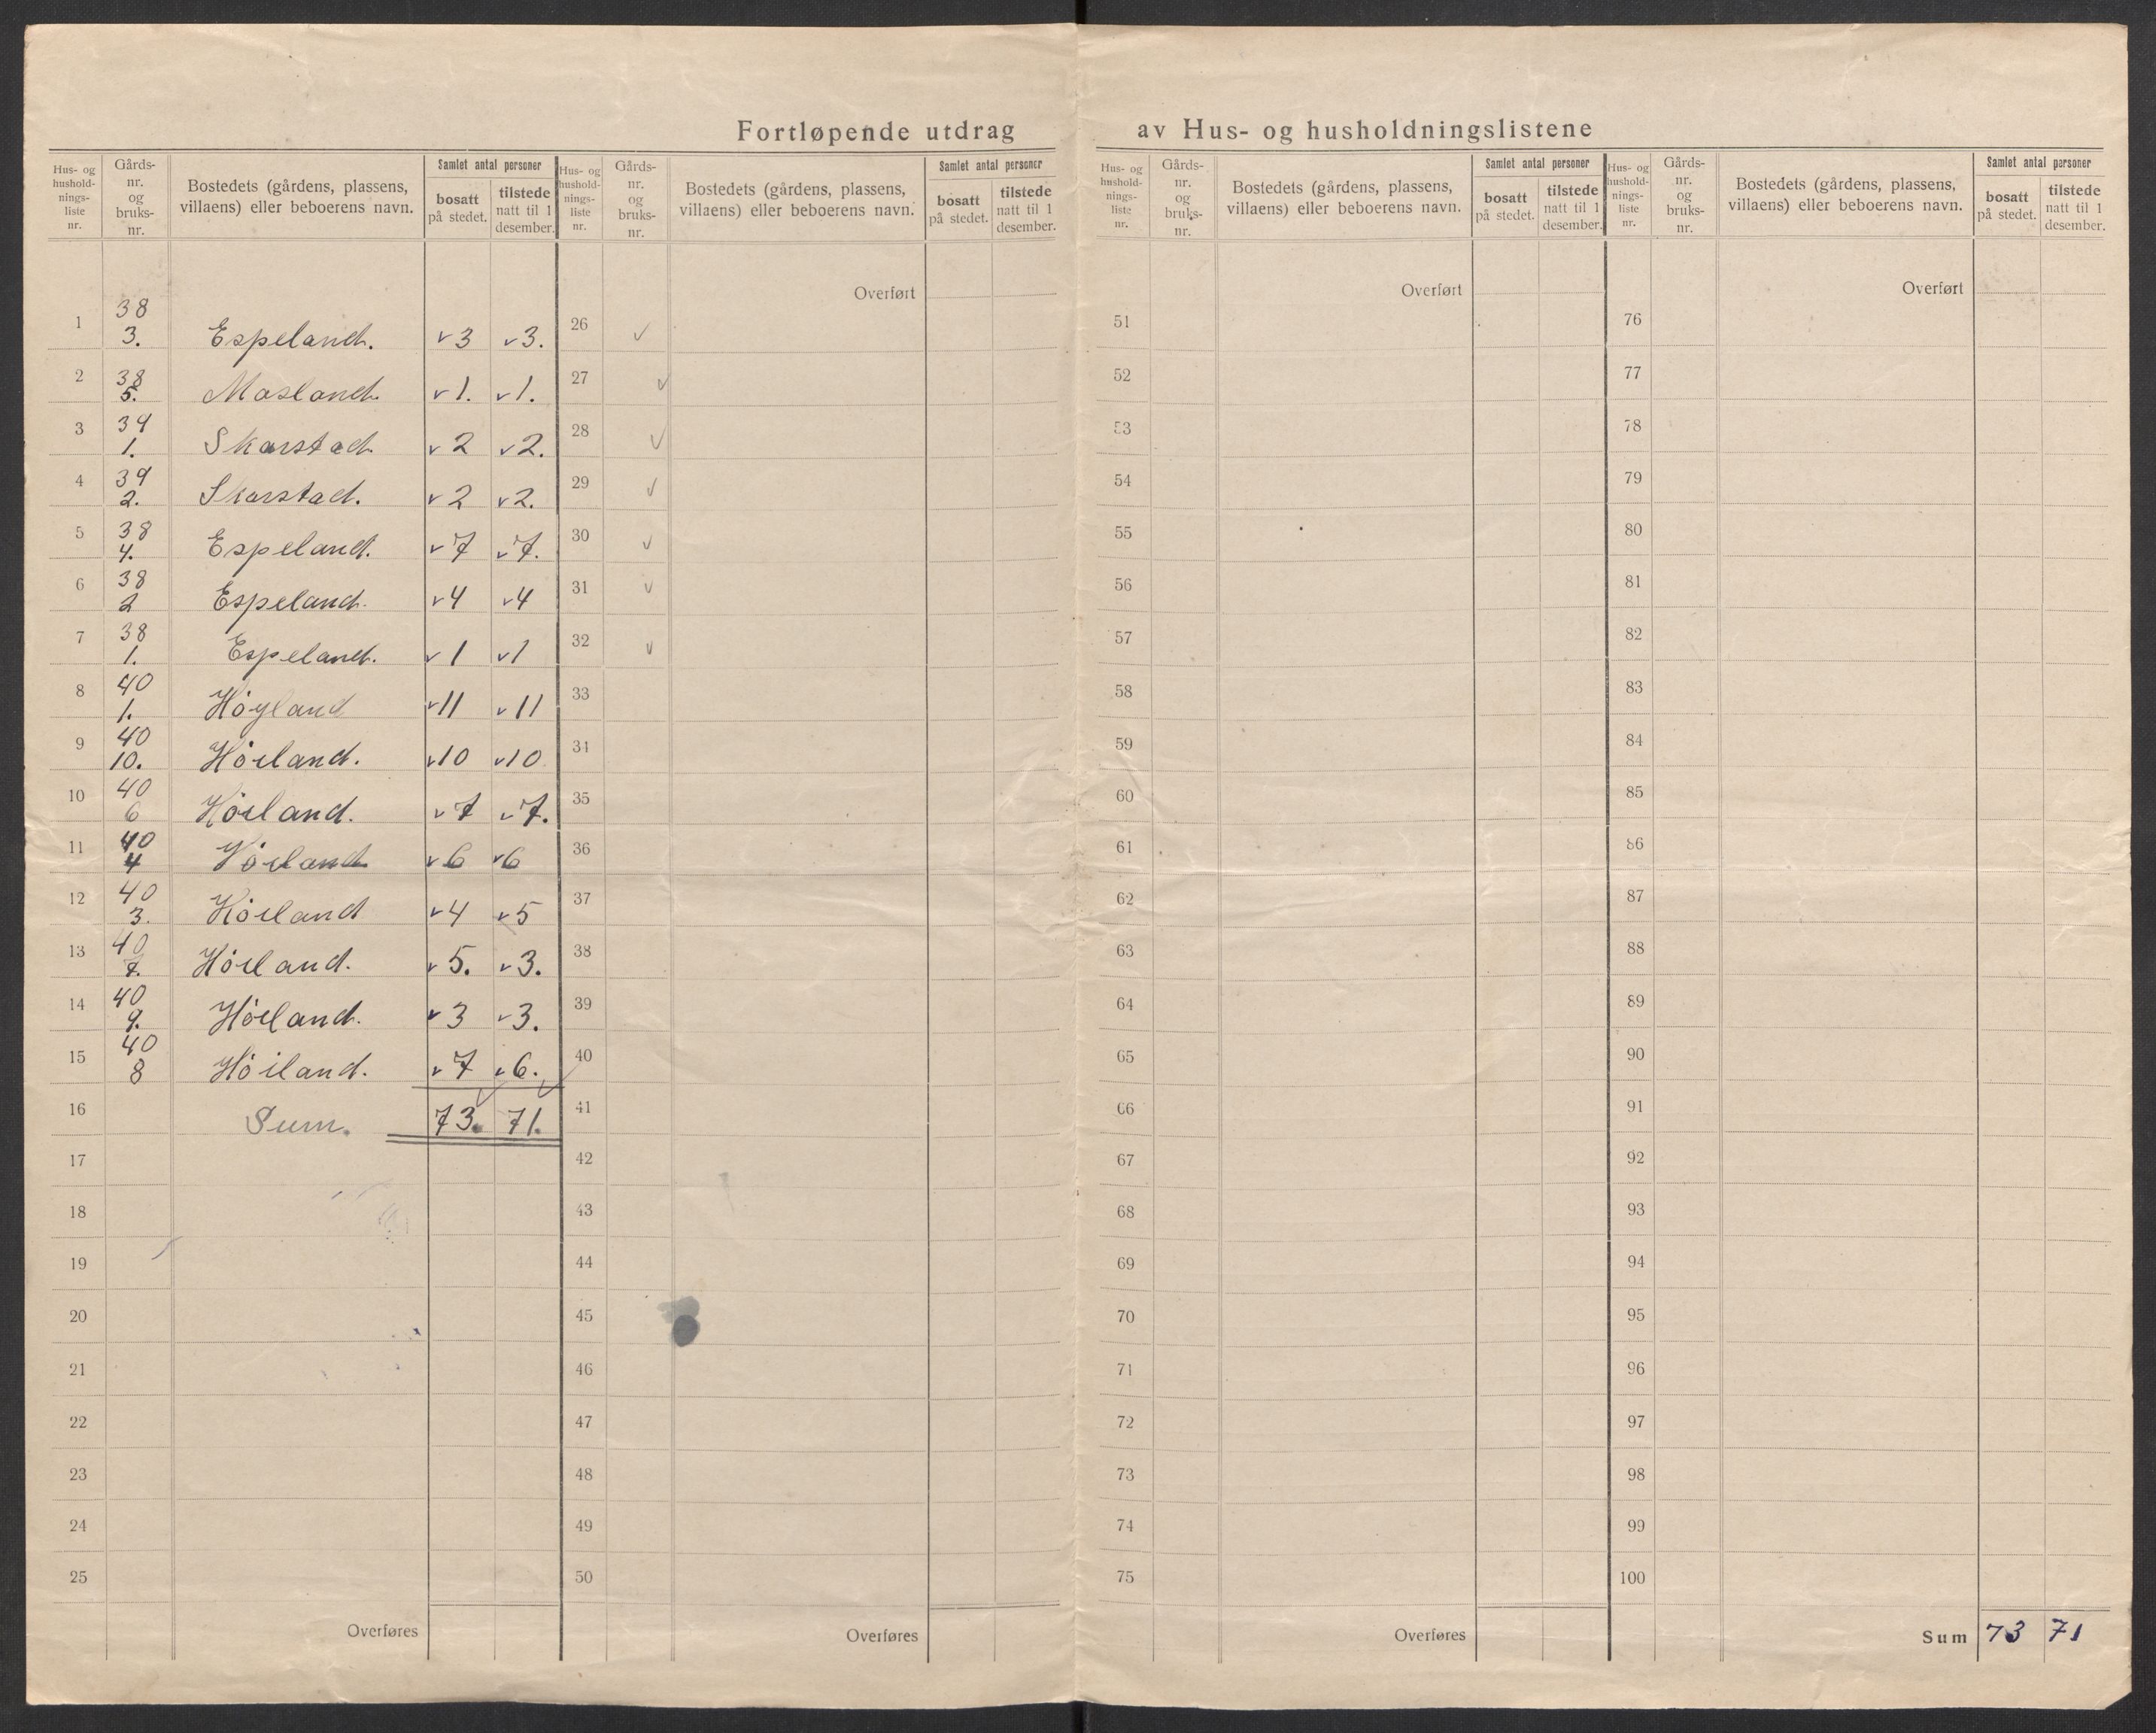 Fortløpende utdrag av Hus- og husholdningslistene
Hus- og hushold-nings-liste nr. Gårds-nr. og bruks-nr. Bostedets (gårdens, plassens, villaens) eller beboerens navn. Samlet antal personer bosatt på stedet. tilstede natt til 1 desember.
1 38 3. Espeland. v3 v3.
2 38 5. Masland. v1. v1.
3 39 1. Skarstad. v2 v2.
4 39 2. Skarstad. v2 v2.
5 38 4. Espeland. v7 v7.
6 38 2 Espeland. v4 v4
7 38 1. Espeland. v1 v1
8 40 1. Höyland v11 v11
9 40 10. Höiland. v10 v10
10 40 6 Höiland. v7 v7.
11 40 4 Höiland v6 v6
12 40 3. Höiland v4 v5
13 40 7. Höiland. v5. v3.
14 40 9. Höiland. v3 v3.
15 40 8 Höiland. v7 v6.
16 Sum. 73. 71.
17
18
19
20
21
22
23
24
25
Overføres
Hus- og hushold-nings-liste nr. Gårds-nr. og bruks-nr. Bostedets (gårdens, plassens, villaens) eller beboerens navn. Samlet antal personer bosatt på stedet. tilstede natt til 1 desember.
Overført
26 v
27 v
28 v
29 v
30 v
31 v
32 v
33
34
35
36
37
38
39
40
41
42
43
44
45
46
47
48
49
50
Overføres
Hus- og hushold-nings-liste nr. Gårds-nr. og bruks-nr. Bostedets (gårdens, plassens, villaens) eller beboerens navn. Samlet antal personer bosatt på stedet. tilstede natt til 1 desember.
Overført
51
52
53
54
55
56
57
58
59
60
61
62
63
64
65
66
67
68
69
70
71
72
73
74
75
Overføres
Hus- og hushold-nings-liste nr. Gårds-nr. og bruks-nr. Bostedets (gårdens, plassens, villaens) eller beboerens navn. Samlet antal personer bosatt på stedet. tilstede natt til 1 desember.
Overført
76
77
78
79
80
81
82
83
84
85
86
87
88
89
90
91
92
93
94
95
96
97
98
99
100
Sum 73 71